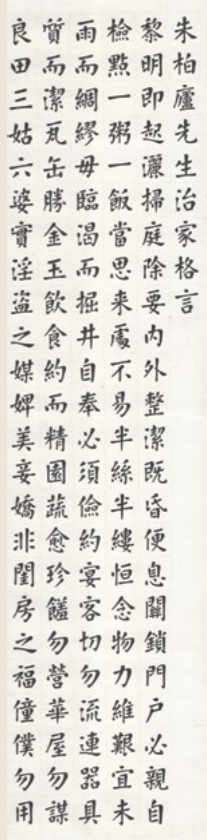 朱柏廬先生治家格言
黎明即起灑掃庭除要內外整潔既昏便息關鎖門戶必親自
檢點一粥一飯當思来處不易半絲半縷恒念物力維艱宜未
雨而綢繆毋臨渴而掘井自奉必須儉約宴客切勿流連器具
質而潔瓦缶勝金玉飲食約而精園蔬愈珍饈勿營華屋勿謀
良田三姑六婆實淫盜之媒婢美妾嬌非閨房之福僮僕勿用